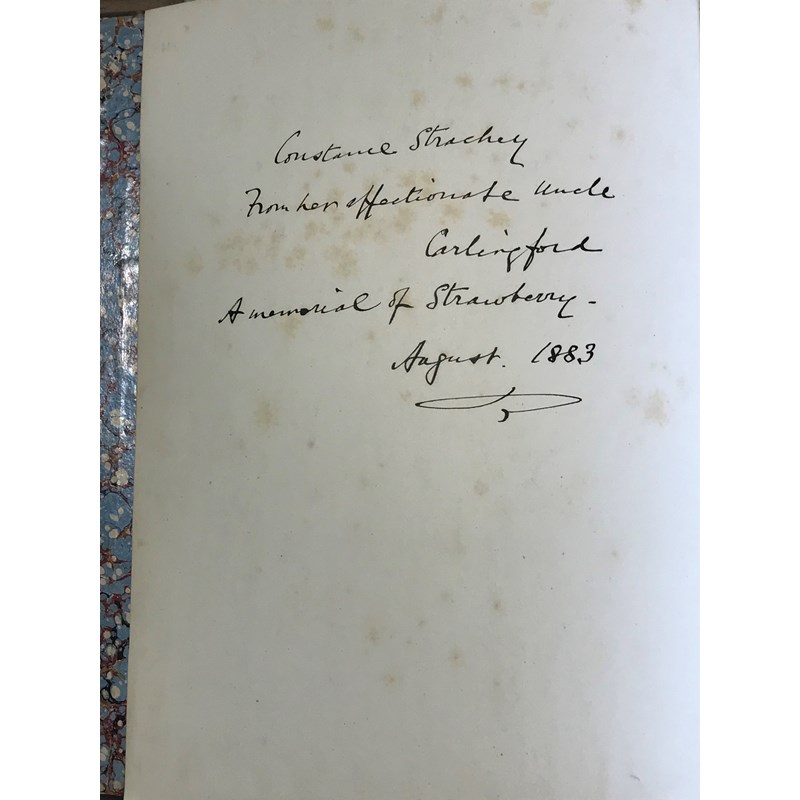 Constance Strachey
From her affectionate Uncle
Carlingford
A memorial of Strawberry -
August. 1883